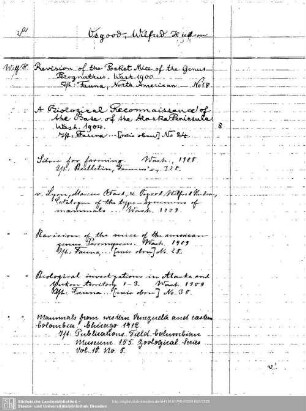 Osgood, Wilfred Hudson
Revision of the Pocket Mice of the Genus
Perognathus. Wash. 1900.
Fauna, North American No 18
A Biological Reconnaissance of
the Base of the Alaska Peninsula
Wash. 1904.
Fauna ... [wie oben] No 24.
8
for farming. Wash. 1908
Bulletin, Farmer's, 328.
v. Lyon, Marcus Ward, & Osgood, Wilfred Hudson,
Catalogue of the type-specimens of
mammals ... Wash. 1909.
Revision of the mice of the american
genus Peromyscus. Wash. 1909
Fauna, ... [wie oben] No. 28.
Biological investigations in Alaska and
Yukon Territory. 1-3. Wash. 1909
Fauna ... [wie oben] No. 30.
Mammals from western Venezuela and eastern
Colombia. Chicago 1912.
Publications. Field Columbian
Museum 155. Zoological Series
Vol. 10 No 5.